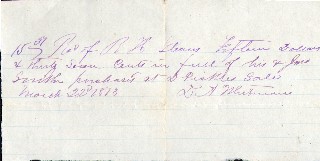 15 37/100 Rec of R H Sloans Fifteen Dollars
& thirty Seven Cents in full of his & Jno
Smiths purchases at D Pickles Sale
March 22d 1873